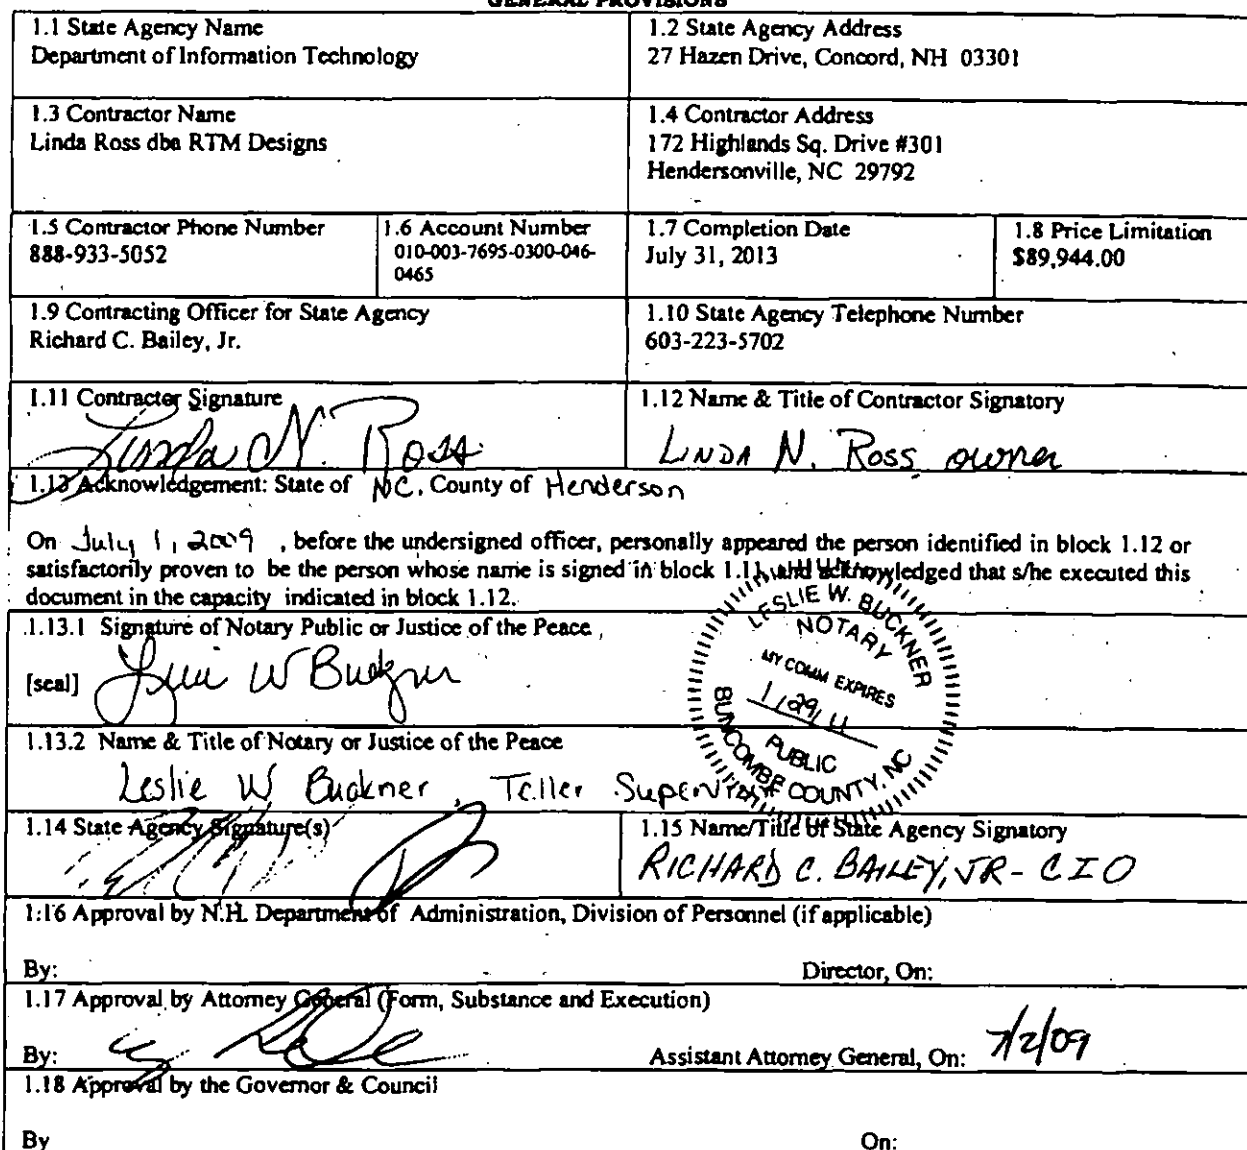 GENERAL PROVISIONS
1.1 State Agency Name
Department of Information Technology
1.2 State Agency Address
27 Hazen Drive, Concord, NH 03301
1.3 Contractor Name
Linda Ross dba RTM Designs
1.4 Contractor Address
172 Highlands Sq. Drive #301
Hendersonville, NC 29792
1.5 Contractor Phone Number
888-933-5052
1.6 Account Number
010-003-7695-0300-046-
0465
1.7 Completion Date
July 31, 2013
1.8 Price Limitation
$89,944.00
1.9 Contracting Officer for State Agency
Richard C. Bailey, Jr.
1.10 State Agency Telephone Number
603-223-5702
1.11 Contractor Signature
Linda N. Ross
1.12 Name & Title of Contractor Signatory
LINDA N. Ross owner
1.13 Acknowledgement: State of NC. County of Henderson
On July 1, 2009 , before the undersigned officer, personally appeared the person identified in block 1.12 or
satisfactorily proven to be the person whose name is signed in block 1.11, and acknowledged that s/he executed this
document in the capacity indicated in block 1.12.
1.13.1 Signature of Notary Public or Justice of the Peace
[seal] Leslie W Buckner
LESLIE W. BUCKNER
NOTARY
MY COMM EXPIRES
1/29/11
PUBLIC
BUNCOMBE COUNTY, NC
1.13.2 Name & Title of Notary or Justice of the Peace
Leslie W Buckner, Teller Supervisor
1.14 State Agency Signature(s)
1.15 Name/Title of State Agency Signatory
RICHARD C. BAILEY, JR - CIO
1.16 Approval by N.H. Department of Administration, Division of Personnel (if applicable)
By: Director, On:
1.17 Approval by Attorney General (Form, Substance and Execution)
By: Assistant Attorney General, On: 7/2/09
1.18 Approval by the Governor & Council
By On: